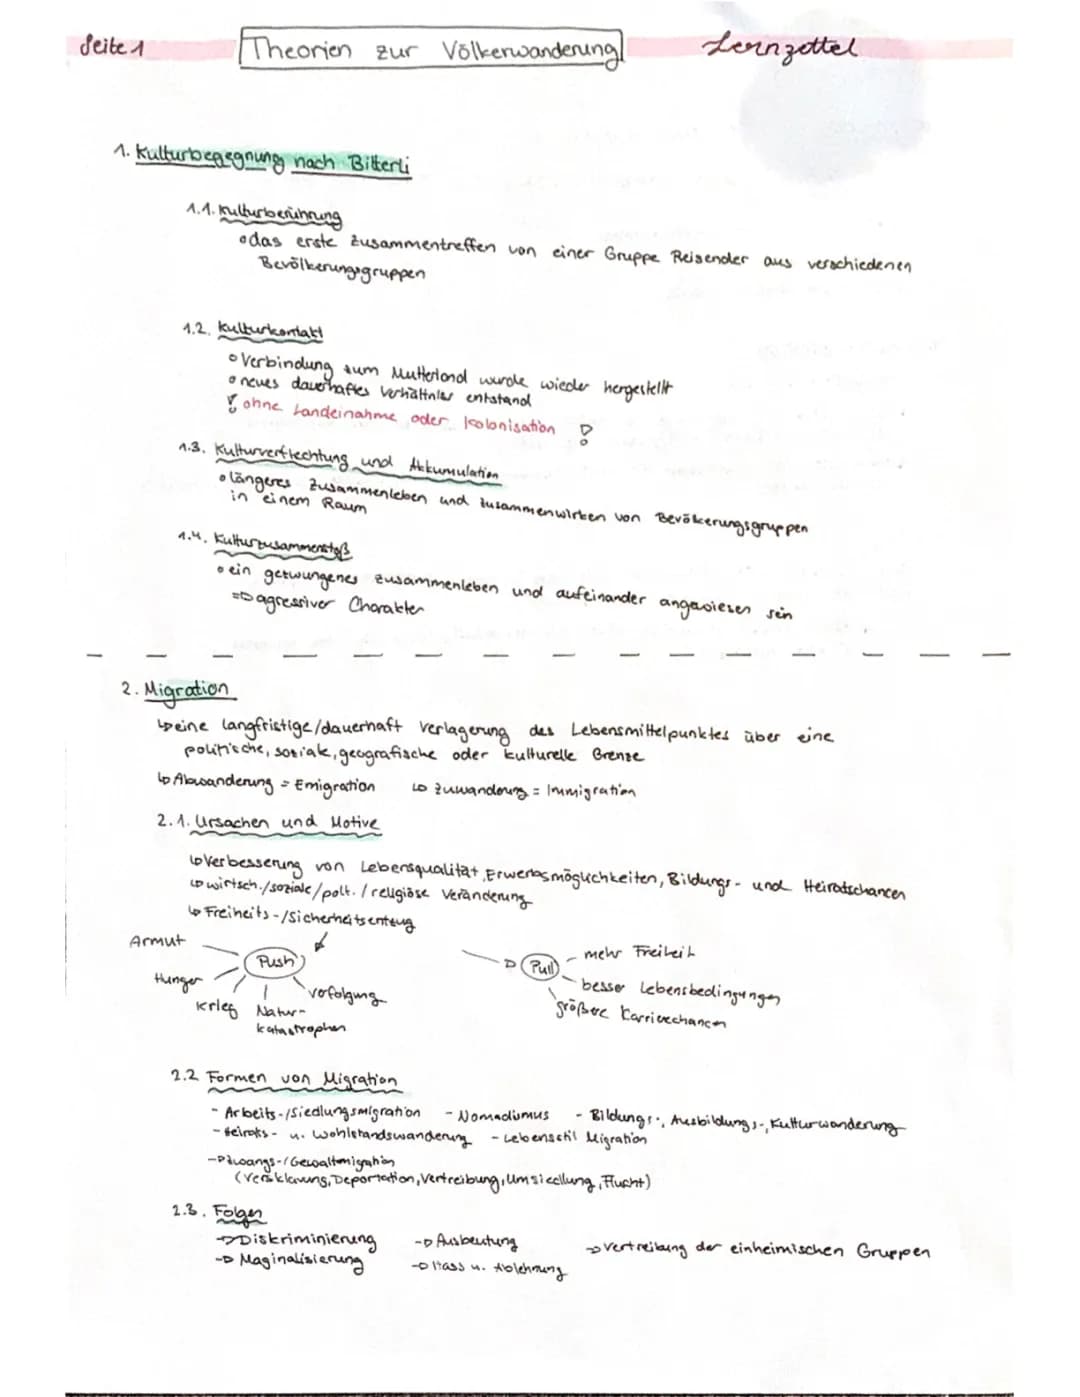 Seite 1
Theorien zur Völkerwanderung
Lernzettel
1. Kulturbegegnung nach Bitterli
1.1. Kulturberührung
das erste Zusammentreffen von einer Gruppe Reisender aus verschiedenen
Bevölkerungsgruppen
1.2. Kulturkontakt
Verbindung zum Mutterland wurde wieder hergestellt
neues dauerhaftes Verhältnis entstand
! ohne Landeinahme oder Kolonisation !
1.3. Kulturverflechtung und Akkumulation
längeres Zusammenleben und zusammenwirken von Bevölkerungsgruppen
in einem Raum
1.4. Kulturzusammenstoß
ein gezwungenes Zusammenleben und aufeinander angewiesen sein
=> agressiver Charakter
2. Migration
↳ eine langfristige/dauerhaft Verlagerung des Lebensmittelpunktes über eine
politische, soziale, geografische oder kulturelle Grenze
↳ Abwanderung = Emigration ↳ Zuwanderung = Immigration
2.1. Ursachen und Motive
↳ Verbesserung von Lebensqualität, Erwerbsmöglichkeiten, Bildungs- und Heiratschancen
↳ wirtsch./soziale/polt./religiöse Veränderung
↳ Freiheits-/Sicherheitsentzug
Armut
Hunger
Krieg
Natur-
katastrophen
Verfolgung
Push
Pull
- mehr Freiheit
- besser Lebensbedingungen
größere Karrierechancen
2.2 Formen von Migration
- Arbeits-/Siedlungsmigration - Nomadismus - Bildungs-, Ausbildungs-, Kulturwanderung
- Heirats- u. Wohlstandswanderung - Lebensstil Migration
- Zwangs-/Gewaltmigration
(Versklavung, Deportation, Vertreibung, Umsiedlung, Flucht)
2.3. Folgen
→ Diskriminierung → Ausbeutung → Vertreibung der einheimischen Gruppen
→ Maginalisierung → Hass u. Ablehnung